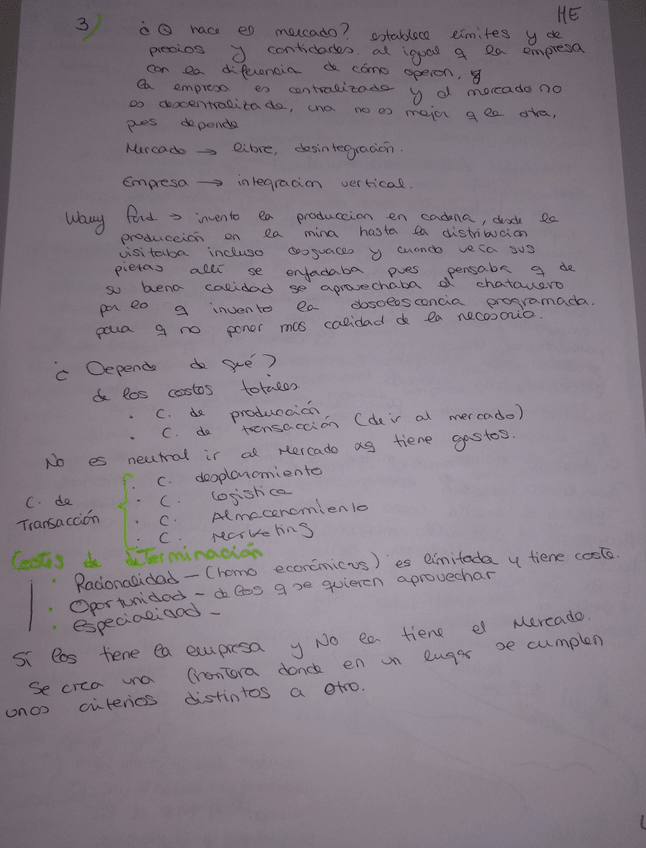 HE
3) ¿Q hace el mercado? establece límites y de
precios y cantidades. al igual q la empresa
con la diferencia de cómo operan, y
la empresa es centralizada y el mercado no
es descentralizada, una no es mejor q la otra,
pues depende
Mercado → libre, desintegración.
Empresa → integracion vertical.
Ford → invento la produccion en cadena, desde la
producción en la mina hasta la distribucion
visitaba incluso desguaces y cuando veía sus
piezas allí se enfadaba pues pensaba q de
su buena calidad se aprovechaba el chatarrero
por lo q invento la programada.
para q no poner mas calidad de la necesaria.
¿ Depende de qué?
de los costos totales
• C. de producción
• C. de transacción (de ir al mercado)
No es neutral ir al Mercado tiene gastos.
C. de Transacción
• C. desplazamiento
• C. Logistica
• C. Almacenamiento
• C. Marketing
Costes de determinación
• Racionalidad - (homo económicus) es limitada y tiene coste.
• Oportunidad - de los q se quieren aprovechar
• Especialidad -
Sí los tiene la empresa y No la tiene el Mercado.
Se crea una frontera donde en un lugar se cumplen
unos criterios distintos a otro.